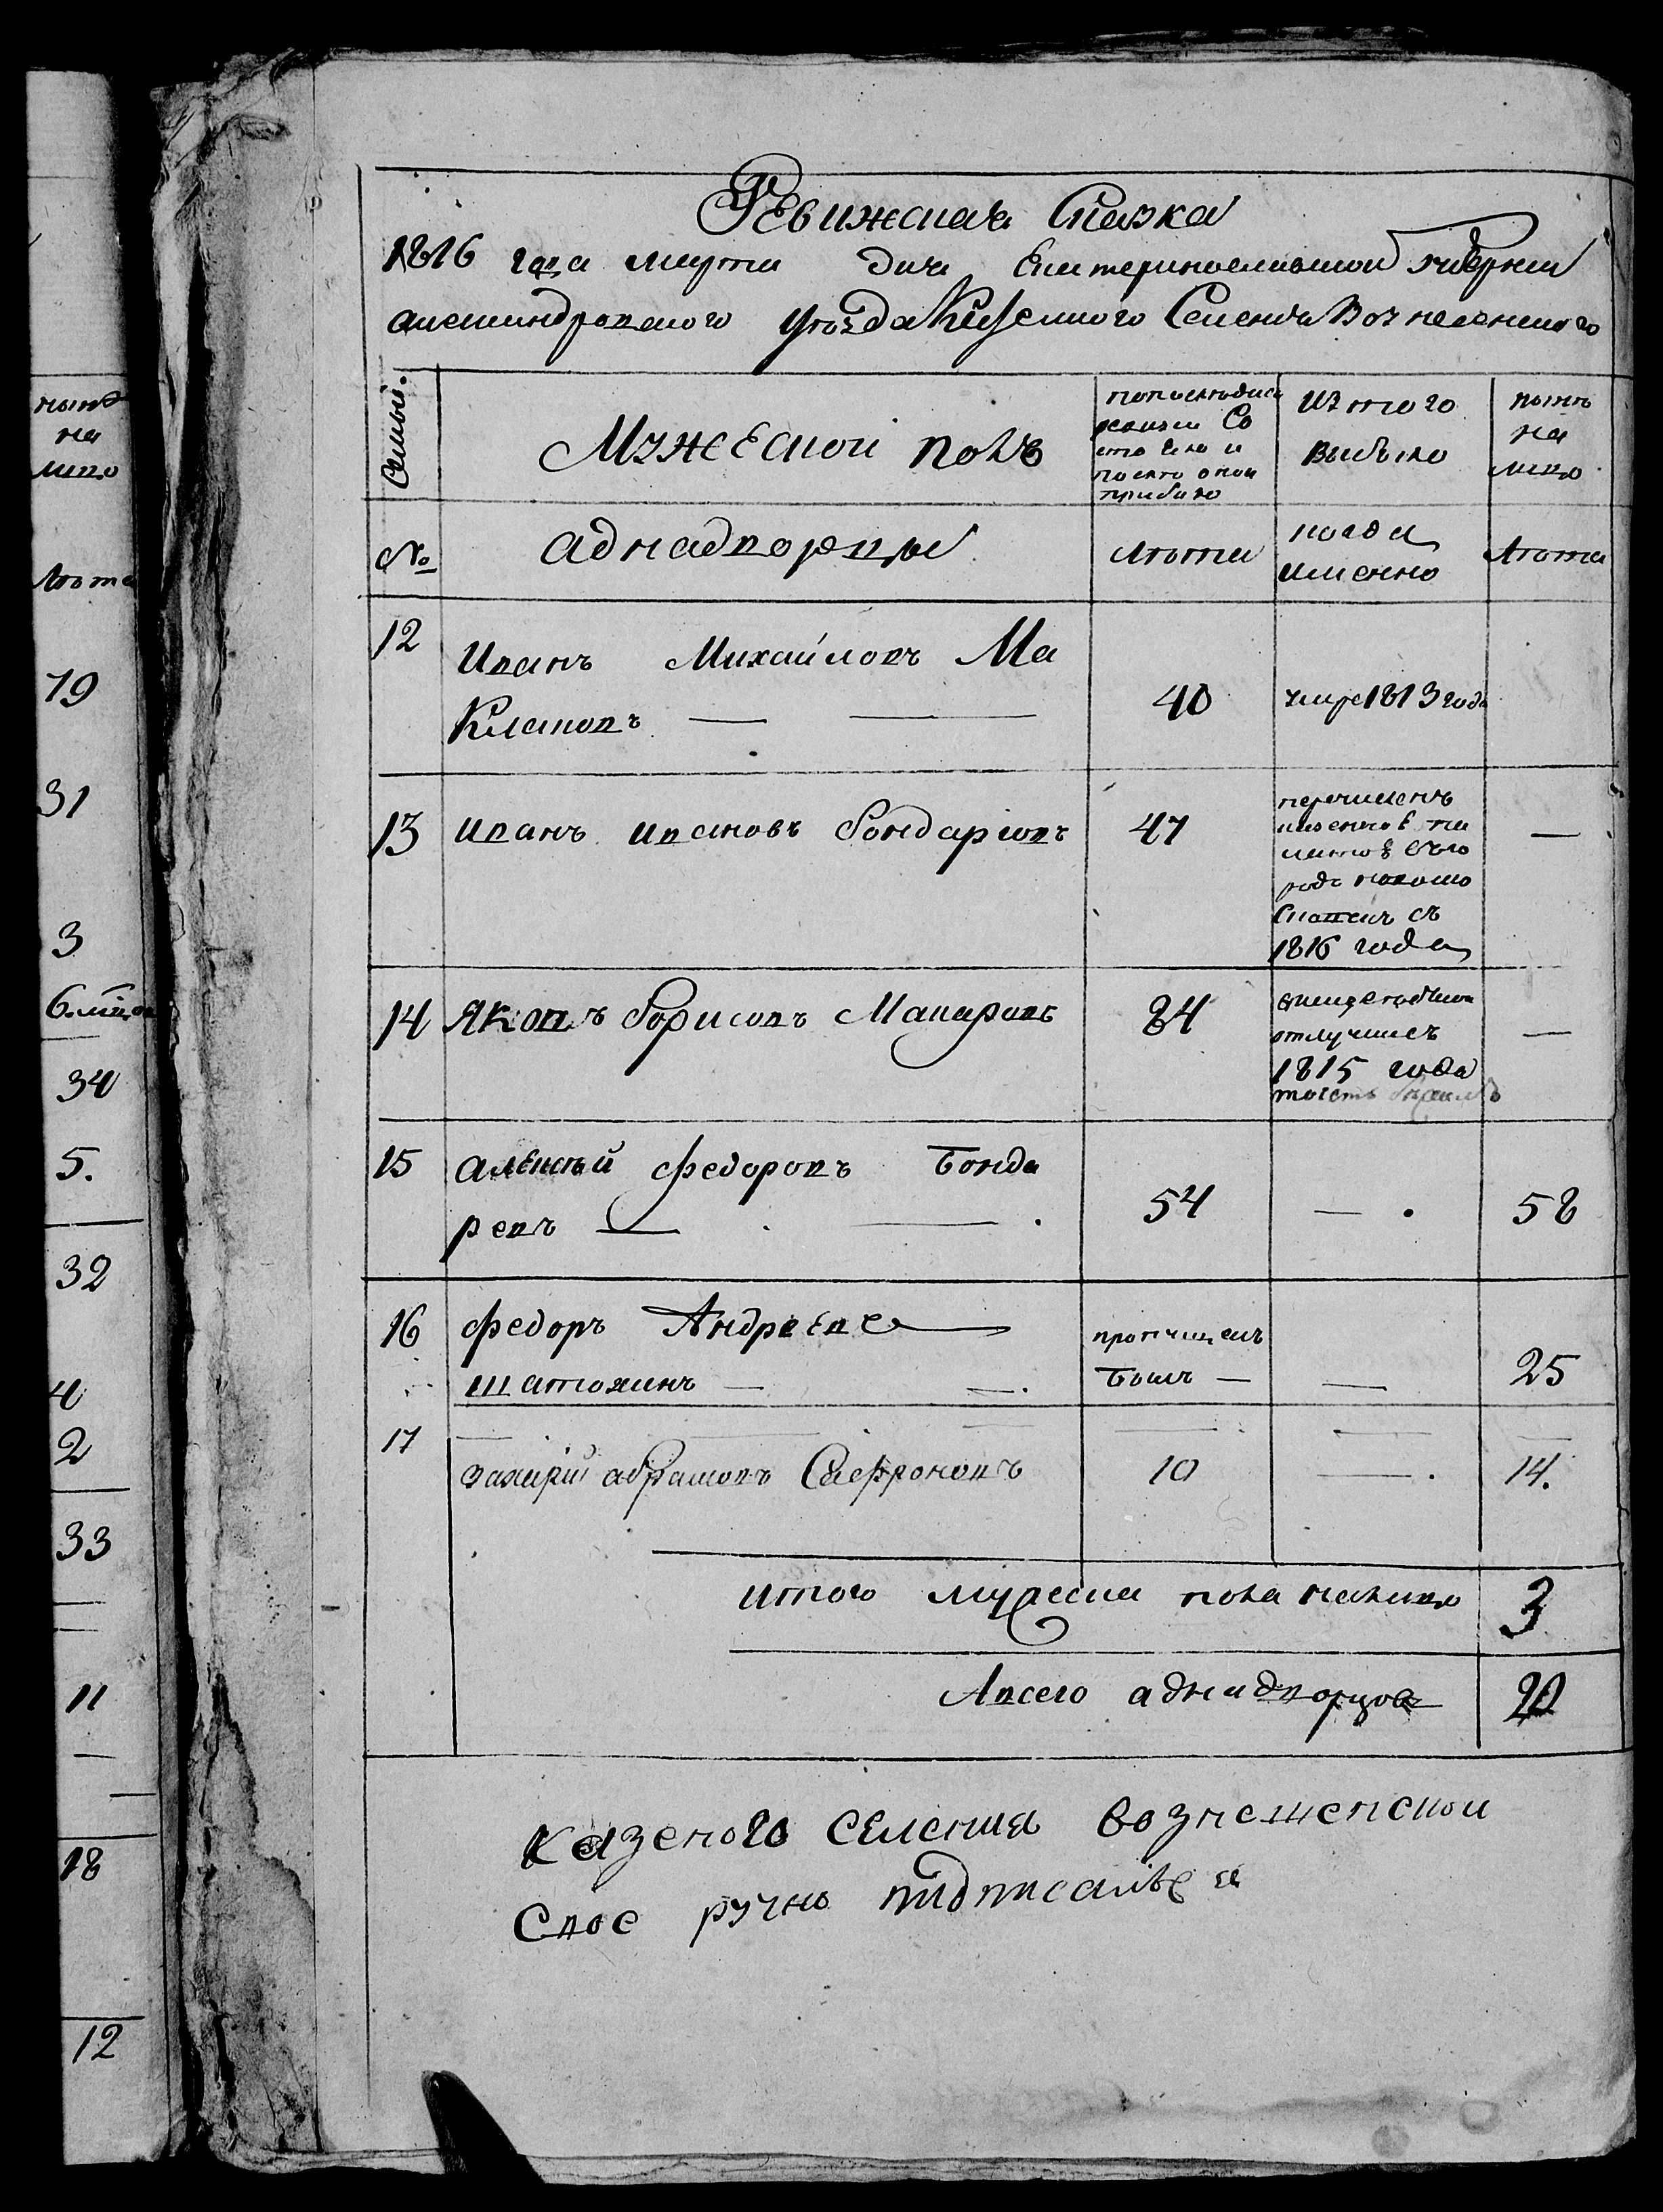 ныне
на
лицо
лета
19
31
3
6. мсцов
34
5.
32
4
2
33
11
18
12
Ревижская Сказка
1816 года марта дня Екатеринославской губернии
александровского уезда Казенного Селения Вознесенского
Семьи.
Мужеской полъ
попоследней
ревизии Со
стояло и
после оной
прибыло
Из того
выбыло
ныне
на
лицо
№
аднадворцы
лета
когда
именно
лета
12
Иванъ Михайловъ Ма
Клаковъ
40
умре 1813 года
13
иванъ ивановъ бондаревъ
47
перечисленъ
1816 года
—
14
Яковъ борисовъ Макаровъ
84
отлучился
1815 года
—
15
алексей федоровъ Бонда
ревъ —
54
— .
58
16
федоръ Андреевъ
шатохинъ —
пропущенъ
былъ —
—
25
17
захарий абрамовъ Сафроновъ
10
— .
14.
итого мужеска пола налицо
3
Авсего аднадворцовъ
20
казеного селения вознесенской
Свое ручно подписался